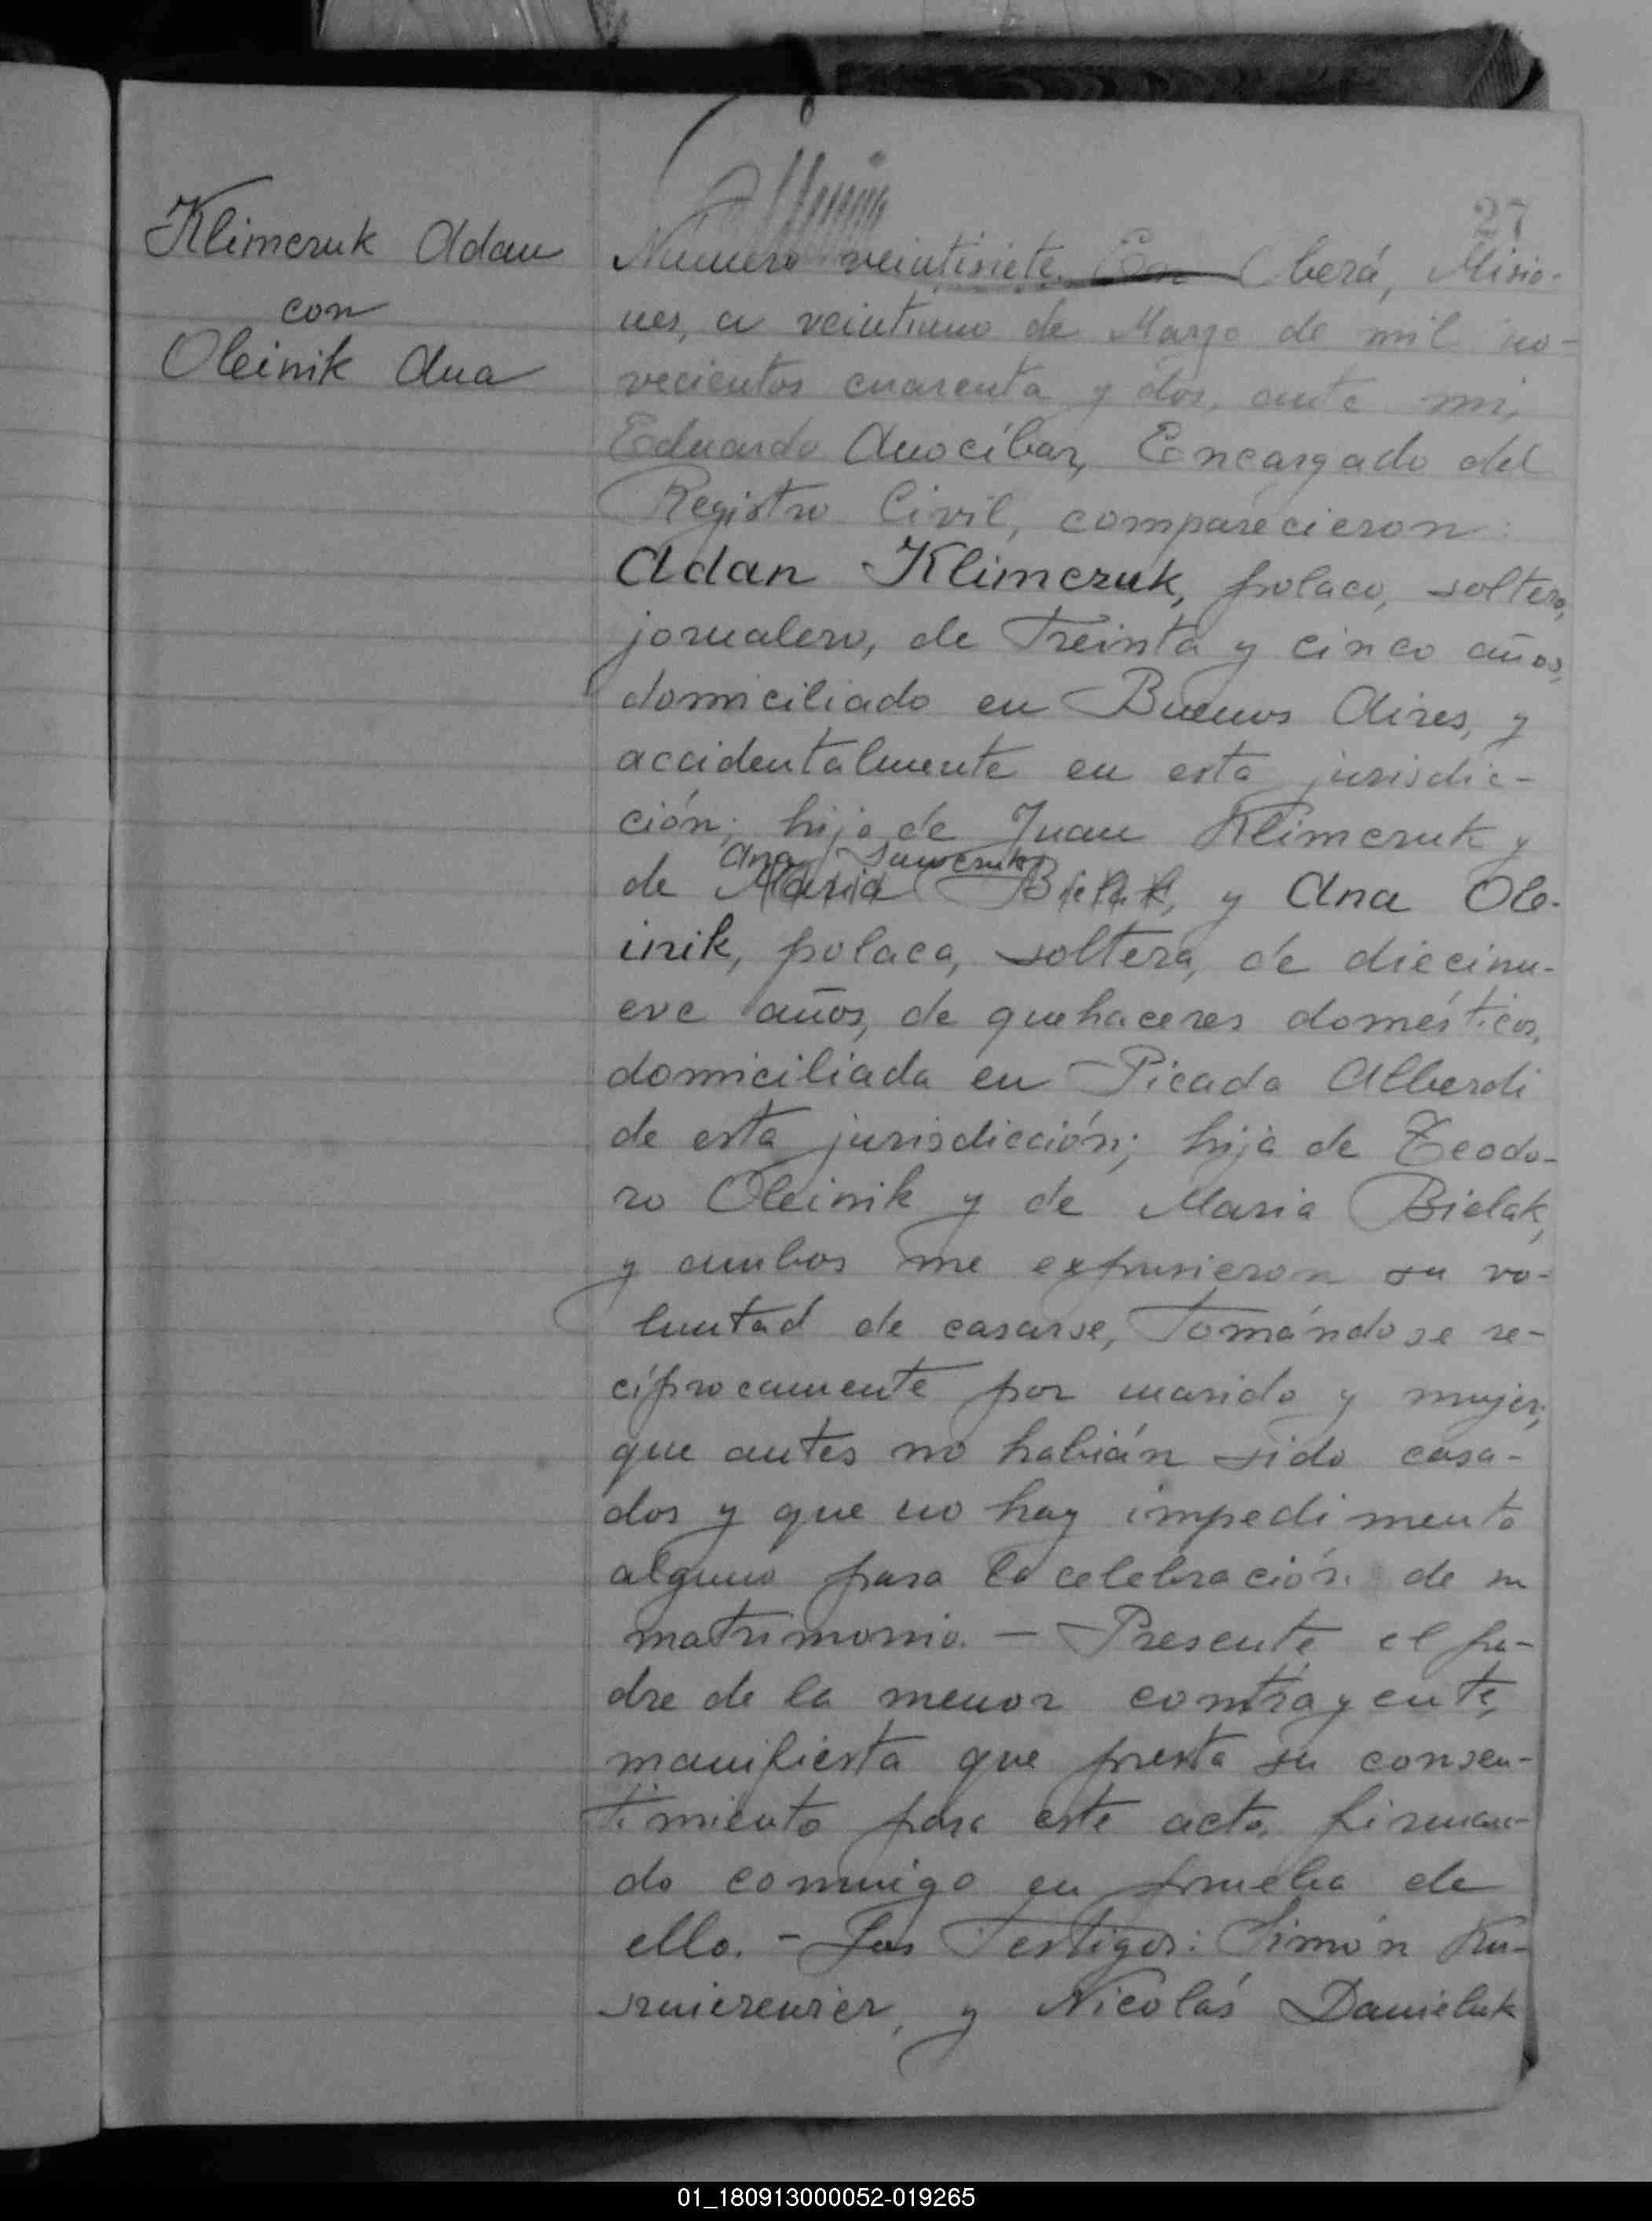 27
Klimczuk Adan
con
Oleinik Ana
Numero veintisiete. En Oberá, Misio-
nes, a veintiuno de Marzo de mil no-
vecientos cuarenta y dos, ante mi,
Eduardo Anocíbar, Encargado del
Registro Civil, comparecieron:
Adan Klimczuk, polaco, soltero,
jornalero, de treinta y cinco años,
domiciliado en Buenos Aires, y
accidentalmente en esta jurisdic-
ción; hijo de Juan Klimczuk y
Ana
de Maria Bielak, y Ana Ole-
inik, polaca, soltera, de diecinu-
eve años, de quehaceres domésticos,
domiciliada en Picada Alberdi
de esta jurisdicción; hija de Teodo-
ro Oleinik y de Maria Bielak,
y ambos me expusieron su vo-
luntad de casarse, tomándose re-
cíprocamente por marido y mujer;
que antes no habián sido casa-
dos y que no hay impedimento
alguno para la celebración de su
matrimonio. - Presente el pa-
dre de la menor contrayente,
manifiesta que presta su consen-
timiento para este acto, firman-
do conmigo en prueba de
ello. - Los Testigos: Simón
y Nicolás Danieluk
01_180913000052-019265